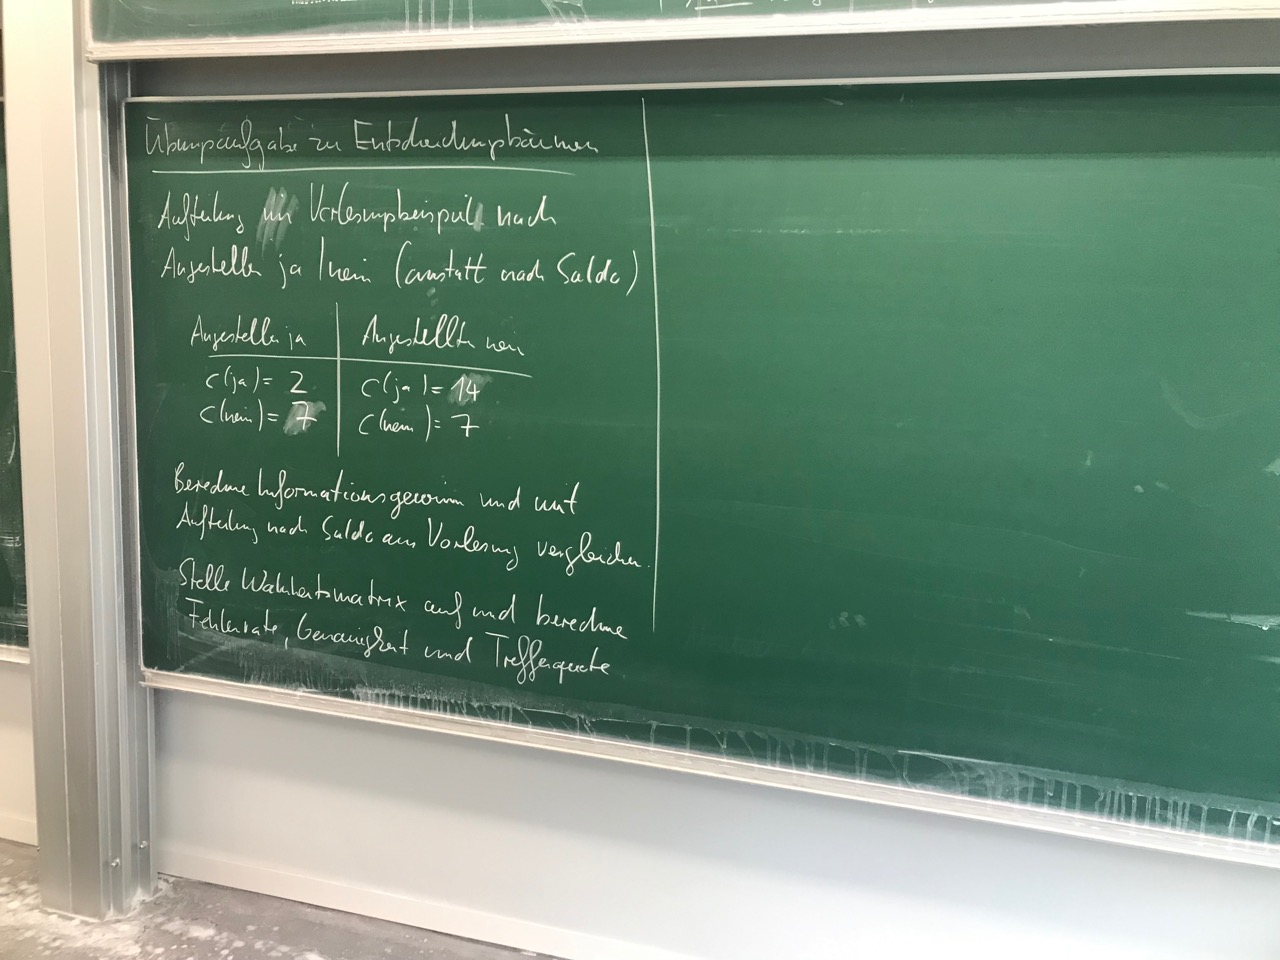 Übungsaufgabe zu Entscheidungsbäumen
Aufteilung im Vorlesungsbeispiel nach
Angestellter ja / nein (anstatt nach Saldo)
Angestellter ja
Angestellter nein
C(ja) = 2
C(ja) = 14
C(nein) = 7
C(nein) = 7
Berechne Informationsgewinn und mit
Aufteilung nach Saldo aus Vorlesung vergleichen.
Stelle Wahrheitsmatrix auf und berechne
Fehlerrate, Genauigkeit und Trefferquote